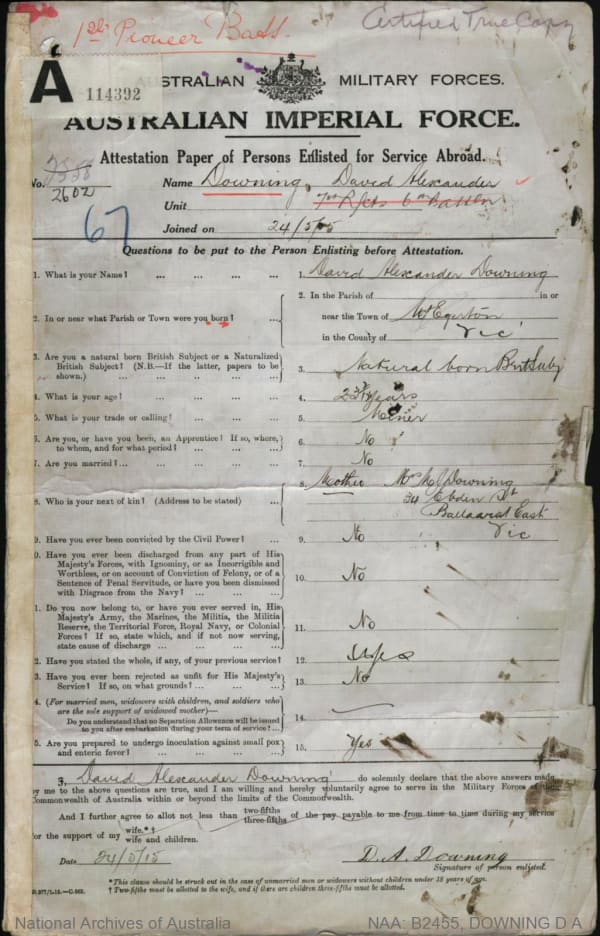 1st Pioneer Batt.
Certified True Copy
A 114392
AUSTRALIAN MILITARY FORCES.
AUSTRALIAN IMPERIAL FORCE.
Attestation Paper of Persons Enlisted for Service Abroad.
No. 2602
Name Downing, David Alexander
Unit
67
Joined on 24/5/15
Questions to be put to the Person Enlisting before Attestation.
1. What is your Name? ... ... ... ... 1. David Alexander Downing
2. In or near what Parish or Town were you born? ... 2. In the Parish of in or
near the Town of Mt Egerton
in the County of Vic
3. Are you a natural born British Subject or a Naturalized British Subject? (N.B.—If the latter, papers to be shown.) ... ... ... ... 3. Natural born Brit Subj
4. What is your age? ... ... ... ... 4. years
5. What is your trade or calling? ... ... ... 5. Miner
6. Are you, or have you been, an Apprentice? If so, where, to whom, and for what period? ... ... ... 6. No
7. Are you married? ... ... ... ... 7. No
8. Who is your next of kin? (Address to be stated) ... 8. Mother Mrs M J Downing
34 Ebden St
Ballaarat East
Vic
9. Have you ever been convicted by the Civil Power? ... 9. No
0. Have you ever been discharged from any part of His Majesty's Forces, with Ignominy, or as Incorrigible and Worthless, or on account of Conviction of Felony, or of a Sentence of Penal Servitude, or have you been dismissed with Disgrace from the Navy? ... ... 10. No
1. Do you now belong to, or have you ever served in, His Majesty's Army, the Marines, the Militia, the Militia Reserve, the Territorial Force, Royal Navy, or Colonial Forces? If so, state which, and if not now serving, state cause of discharge ... ... ... 11. No
2. Have you stated the whole, if any, of your previous service? 12. Yes
3. Have you ever been rejected as unfit for His Majesty's Service? If so, on what grounds? ... ... 13. No
4. (For married men, widowers with children, and soldiers who are the sole support of widowed mother)—
Do you understand that no Separation Allowance will be issued to you after embarkation during your term of service? ... 14. —
5. Are you prepared to undergo inoculation against small pox and enteric fever? ... ... ... 15. Yes
I, David Alexander Downing do solemnly declare that the above answers made
by me to the above questions are true, and I am willing and hereby voluntarily agree to serve in the Military Forces of the
Commonwealth of Australia within or beyond the limits of the Commonwealth.
And I further agree to allot not less than two-fifths three-fifths of the pay payable to me from time to time during my service
for the support of my wife.*† wife and children.
Date 24/5/15 D. A. Downing
Signature of person enlisted.
*This clause should be struck out in the case of unmarried men or widowers without children under 18 years of age.
† Two-fifths must be allotted to the wife, and if there are children three-fifths must be allotted.
National Archives of Australia NAA: B2455, DOWNING D A